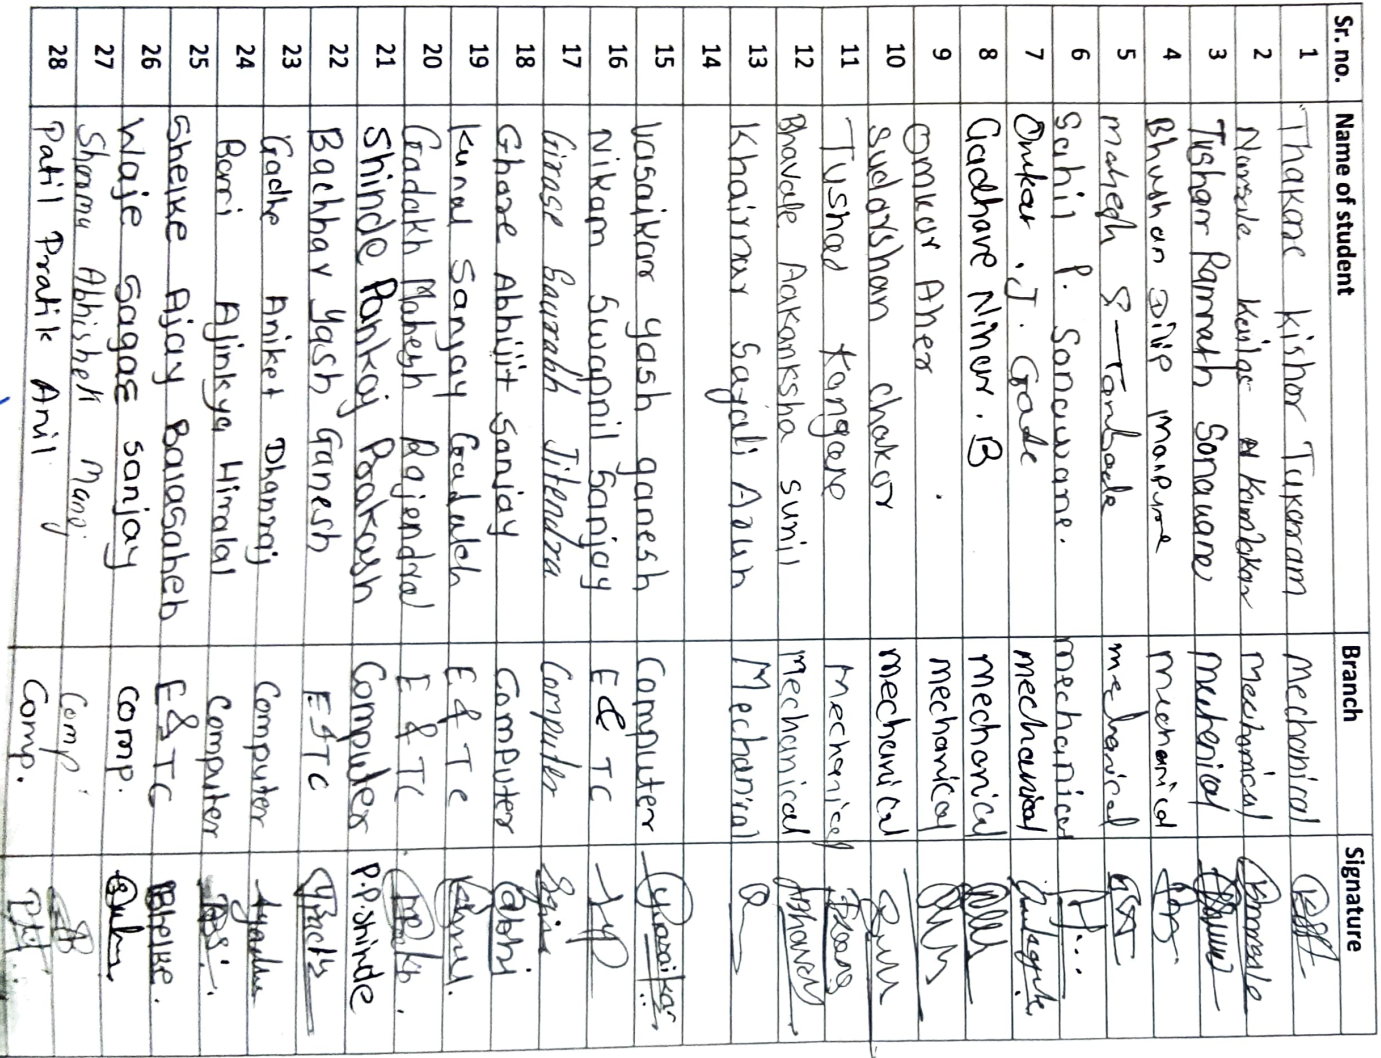 Sr. no. Name of student Branch Signature
1 Thakare Kishor Tukaram Mechanical
2 Kailas Mechanical
3 Tushar Ramnath Sonawane Mechenical
4 Bhushan Dilip Mechanical
5 Mahesh S mechanical
6 Sahil P. Sonawane. mechanical
7 Omkar . J. Gade mechanical
8 Gadhave Niner. B mechanical
9 Omkar Aher mechanical
10 Sudarshan chakor mechenical
11 Tushar Kangane Mechanical
12 Bhavale Aakanksha sunil Mechanical
13 Khairnar Sayali Arun Mechanical
14
15 Vasaikar yash ganesh Computer
16 Nikam Swapnil Sanjay E & TC
17 Girase Saurabh Jitendra Computer
18 Ghare Abhijit Sanjay Computer Abhi
19 Kunal Sanjay Gadakh E & TC
20 Gadakh Mahesh Rajendra E & TC
21 Shinde Pankaj Prakash Computer P.P.Shinde
22 Bachhav Yash Ganesh E&TC
23 Gadhe Aniket Dhanraj Computer
24 Bari Ajinkya Hiralal Computer
25 Shelke Ajay Balasaheb E&TC Shelke.
26 Waje Sagar sanjay comp.
27 Sharma Abhishek Manoj Comp
28 Patil Pratik Anil Comp.